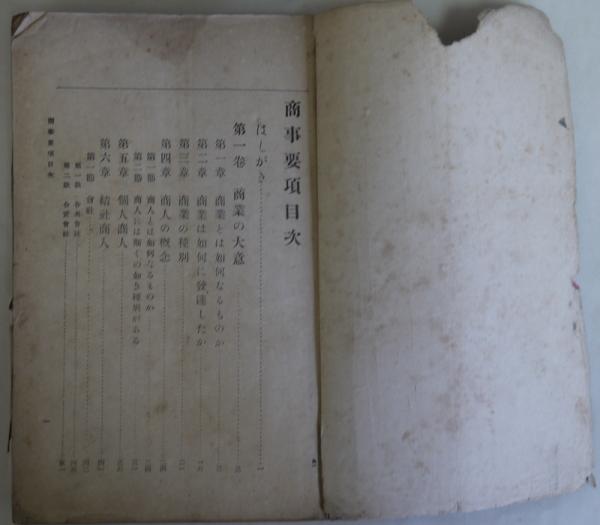 商事要項目次
はしがき
第一卷 商業の大意
第一章 商業とは如何なるものか
第二章 商業は如何に發達したか
第三章 商業の種別
第四章 商人の概念
第一節 商人とは如何なるものか
第二節 商人には如何なる種別がある
第五章 個人商人
第六章 結社商人
第一節 會社
第一款 合名會社
第二款 合資會社
商事要項目次